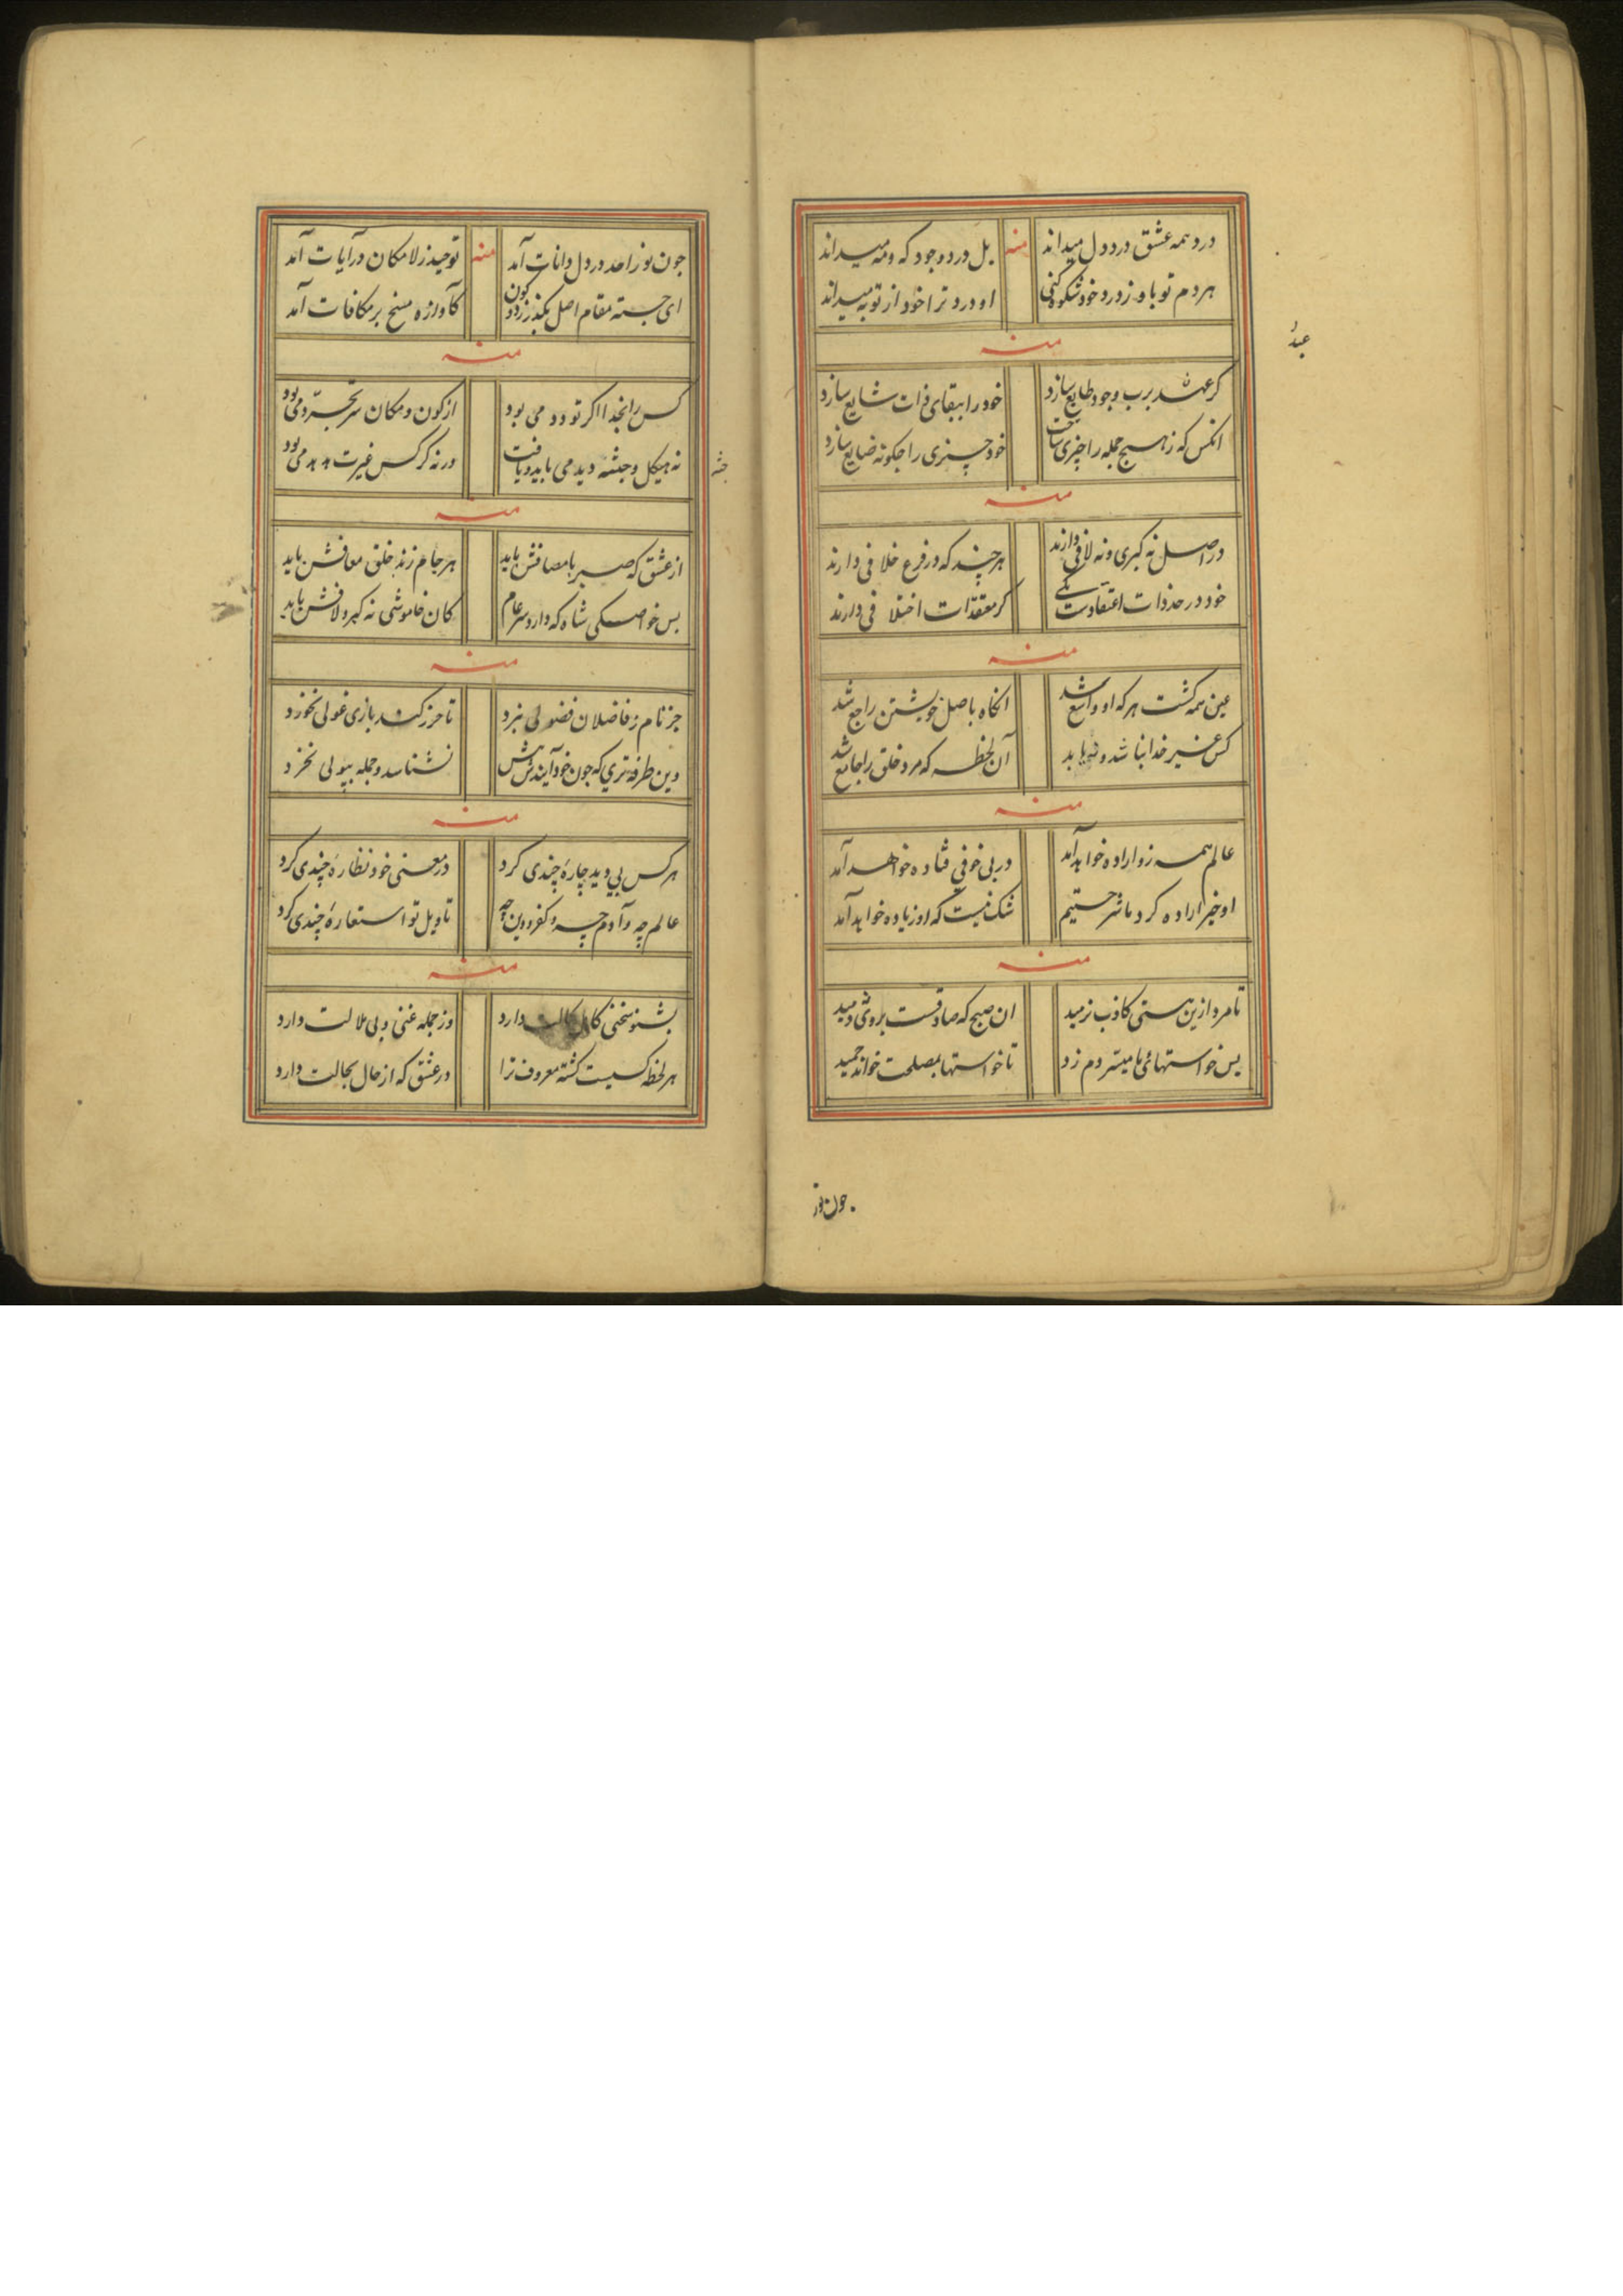 درد همه عشق درد دل میداند
منه
بل درد وجود که ومه میداند
هر دم تو باو ز درد خود شکوه کنی
او درد ترا خود از تو به میداند
منه
عبد
کر عبد برب وجود طایع سازد
خود را ببقای ذات شایع سازد
انکس که ز هیچ جمله را چیزی ساخت
خود چیزی را چکونه ضایع سازد
منه
در اصل نه کبری و نه لافی دارند
هر چند که در فرع خلافی دارند
خود در حد ذات اعتقادست یکی
کر معتقدات اختلافی دارند
منه
عین همه کشت هر که او واسع شد
انکاه باصل خویشتن راجع شد
کس غیر خدا نباشد و
آن لحظه که مرد خلق را جامع شد
منه
عالم همه زو اراده خواهد آمد
در بی خوفی فتاده خواهد آمد
او خیر اراده کرد ما شر جستیم
شک نیست که او زیاده خواهد آمد
منه
تا مرد ازین هستی کاذب نرمید
ان صبح که صادقست بروی ندمید
پس خواستهائی نامیسر دم زد
تا خواستها بمصلحت خواند حمید
جون نور
جون نور احد در دل دانات آمد
منه
توحید ز لامکان در آیات آمد
ای جسته مقام اصل بکذر زد و کون
کآوازه مسخ بر مکافات آمد
منه
کس را بخدا اکر تو ودد می بود
از کون و مکان سر تجرد می بود
نه هیکل و جثه دید می باید و یافت
جثه
ورنه کرکس غیرت هدهد می بود
منه
از عشق که صبر با مصافش باید
هر جام زند خلق معافش باید
پس خواصکی شاه که دارد سر عام
کان خاموشی نه کبر و لافش باید
منه
جز نام ز فاضلان فضولی نبرد
تا حرز کند بازی غولی نخورد
وین طرفه تری که جون خود آیند برش
نشناسد و جمله بپولی نخرد
منه
هر کس بی دید چارهٔ چندی کرد
در معنی خود نظارهٔ چندی کرد
عالم چه و آدم چه و کفر و دین چه
تاویل تو استعارهٔ چندی کرد
منه
بشنو سخنی کان دلالت دارد
وز جمله غنی و بی ملالت دارد
هر لحظه کسیست کشته معروف ترا
در عشق که از حال بحالت دارد